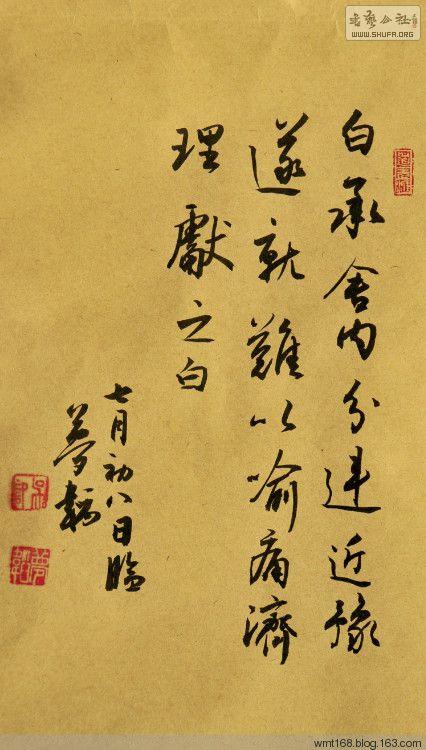 白承舍內分違近豫
遂就難以喻痛濟
理獻之白
七月初八日臨
夢
書藝公社
WWW.SHUFA.ORG
wmt168.blog.163.com